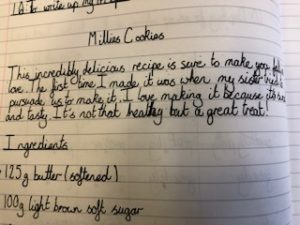 LO: To write up my recipe
Millies Cookies
This incredibly delicious recipe is sure to make you fall in
love. The first time I made it was when my sister tried to
pursuade us to make it. I love making it because its
and tasty. It's not that healthy but a great treat!
Ingredients
125g butter (softened)
100g light brown soft sugar